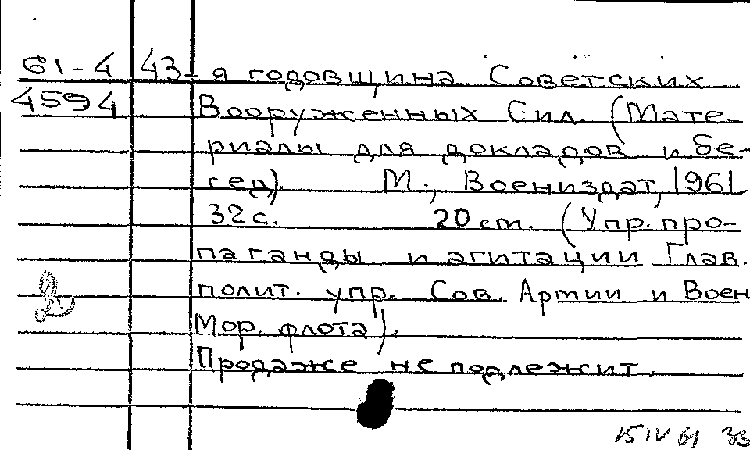 61-4 43-я годовщина Советских
4594 Вооруженных Сил. (Мате-
риалы для докладов и бе-
сед). М., Воениздат, 1961
32 с. 20 cm. (Упр. про-
паганды и агитации Глав.
полит. упр. Сов. Артии и Воен
Мор. флота).
Продаже не подлежит.
15 IV 61